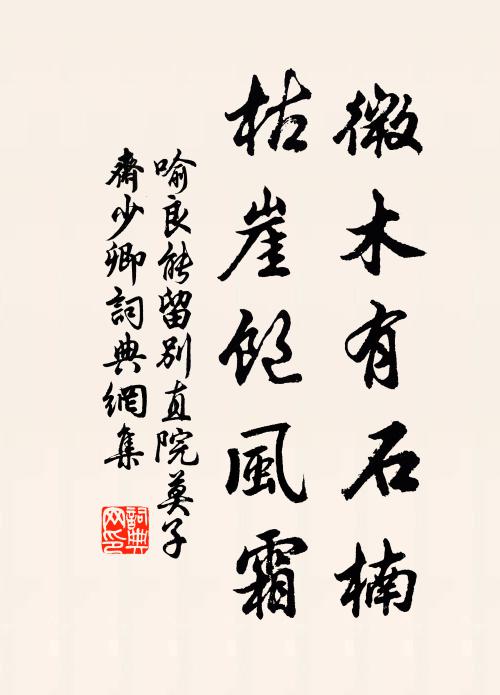 微木有石楠
枯崖飽風霜
喻良能留別直院莫子
齋少卿詞典網集
詞典網印